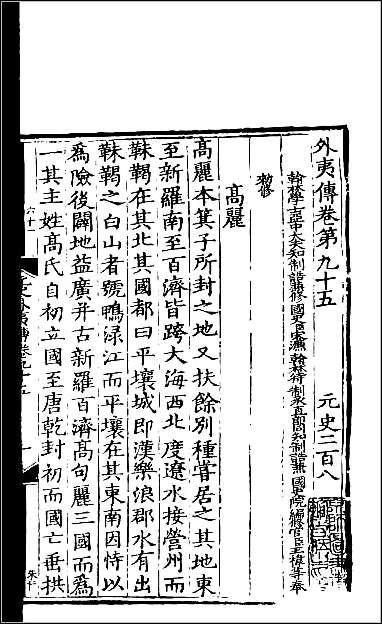 外夷傳卷第九十五　元史二百八
翰林學士亞中大夫知制誥兼修國史臣宋濂翰林待制承直郎同知制誥兼國史院編修官臣王禕等奉
勑修
高麗
高麗本箕子所封之地又扶餘别種嘗居之其地東
至新羅南至百濟皆跨大海西北度遼水接營州而
靺鞨在其北其國都曰平壤城即漢樂浪郡水有出
靺鞨之白山者號鴨渌江而平壤在其東南因恃以
爲險後闢地益廣并古新羅百濟高句麗三國而爲
一其主姓高氏自初立國至唐乾封初而國亡垂拱
六十